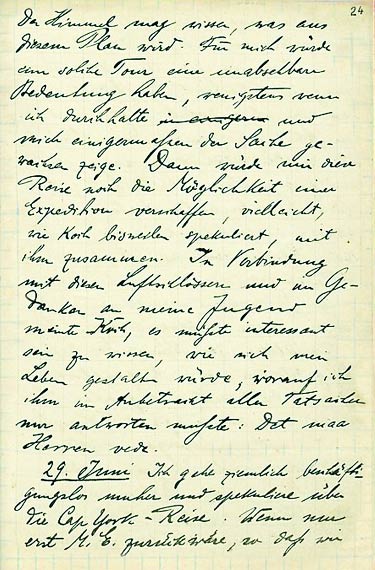 24
Der Himmel mag wissen, was aus
diesem Plan wird. Für mich würde
eine solche Tour eine unabsehbare
Bedeutung haben, wenigstens wenn
ich durchhalte in einigem und
mich einigermassen der Sache ge-
wachsen zeige. Dann würde mir diese
Reise noch die Möglichkeit einer
Expedition verschaffen, vielleicht,
wie Koch bisweilen spekuliert, mit
ihm zusammen. In Verbindung
mit diesen Luftschlössern und im Ge-
danken an meine Jugend
meinte Koch, es müsste interessant
sein zu wissen, wie sich mein
Leben gestalten würde, worauf ich
ihm in Anbetracht aller Tatsachen
nur antworten musste: Det maa
Herren vede.
29. Juni Ich gehe ziemlich beschäfti-
gungslos umher und spekuliere über
die Cap York-Reise. Wenn nur
erst M. E. zurück wäre, so daß wir